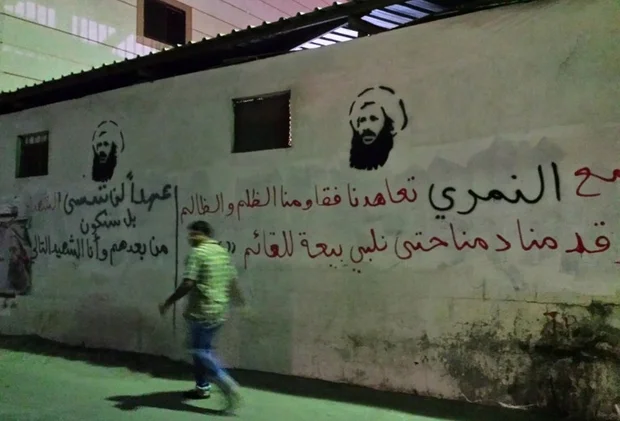 مع النمري تعاهدنا فقاومنا الظلم والظالم
قدمنا دمنا حتى نلبي بيعة للقائم
عهداً لن ننسى
بل سنكون
من بعدهم وأنا الشهيد التالي